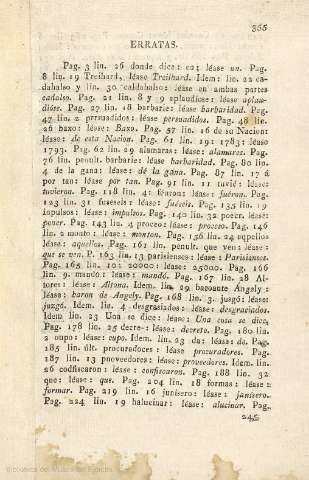 355
ERRATAS.
Pag. 3 lin. 26 donde dice: co; léase un. Pag.
8 lin. 19 Treihard, léase Treilhard. Idem: lin. 22 ca-
dahalso y lin. 30 caldahalso: léase en ambas partes
cadalso. Pag. 21 lin. 8 y 9 aplaudiose: léase aplau-
dióse. Pag. 27 lin. 18 barbarie: léase barbaridad. Pag.
47 lin. 2 persuadidos: léase persuadidos. Pag. 48 lin.
26 baxo: léase: Baxo. Pag. 57 lin. 16 de su Nacion:
léase: de esta Nacion. Pag. 61 lin. 19: 1783: léase
1793. Pag. 62 lin. 29 alamaras: léase: alamares. Pag.
76 lin. penult. barbarie: léase barbaridad. Pag. 80 lin.
4 de la gana: léase: dé la gana. Pag. 87 lin. 17 á
por tan: léase por tan. Pag. 91 lin. 11 tuvié: léase:
tuvieron. Pag. 118 lin. 4: léase: fuéron. Pag.
123 lin. 31 fuseseis: léase: fuéseis. Pag. 135 lin. 19
inpulsos: léase: impulsos. Pag. 140 lin. 32 poeer. léase:
poner. Pag. 143 lin. 4 proceo: léase: proceso. Pag. 146
lin. 2 monto: léase: monton. Pag. 156 lin. 24 aquellos
léase: aquellos. Pag. 161 lin. penult. que ven: léase:
que se ven. P. 163 lin. 13 parisienses: léase: Parisienses.
Pag. 165 lin. 10: 20000: léase: 25000. Pag. 166
lin. 9 mandó: léase: mandó. Pag. 167 lin. 28 Al-
tores: léase: Altona. Idem lin. 29 baronte Angely:
léase: baron de Angely. Pag. 168 lin. 3. jusgó: léase:
juzgó. Idem. lin. 4 desgrasiados: léase: desgraciados.
Idem lin. 23 Una se dice: léase: Una cosa se dice.
Pag. 178 lin. 25 decre: léase: decreto. Pag. 180 lin.
2 oupo: léase: cupo. Idem lin. 23 da: léase: de. Pag.
185 lin. últ. procuradoces: léase procuradores. Pag.
187 lin. 13 pnoveedores: léase: proveedores. Idem. lin.
26 codfiscaron: léase: confiscaron. Pag. 188 lin. 32
que: léase: que. Pag. 204 lin. 18 formas: léase:
formar. Pag. 219 lin. 16 junisero: léase: janisero.
Pag. 224 lin. 19 halucinar: léase: alucinar. Pag.
245
Biblioteca del Museo del Ejército